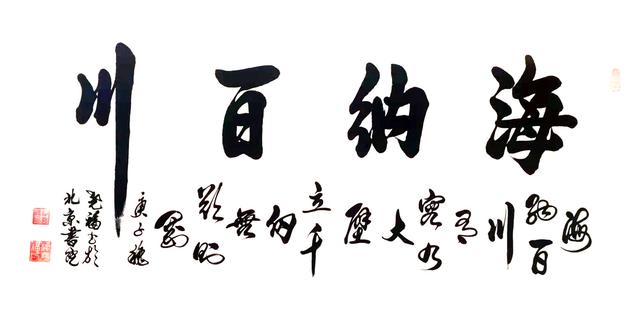 海纳百川
海纳百川有容乃大壁立千仞無欲則剛
庚子秋
福书於
北京書院